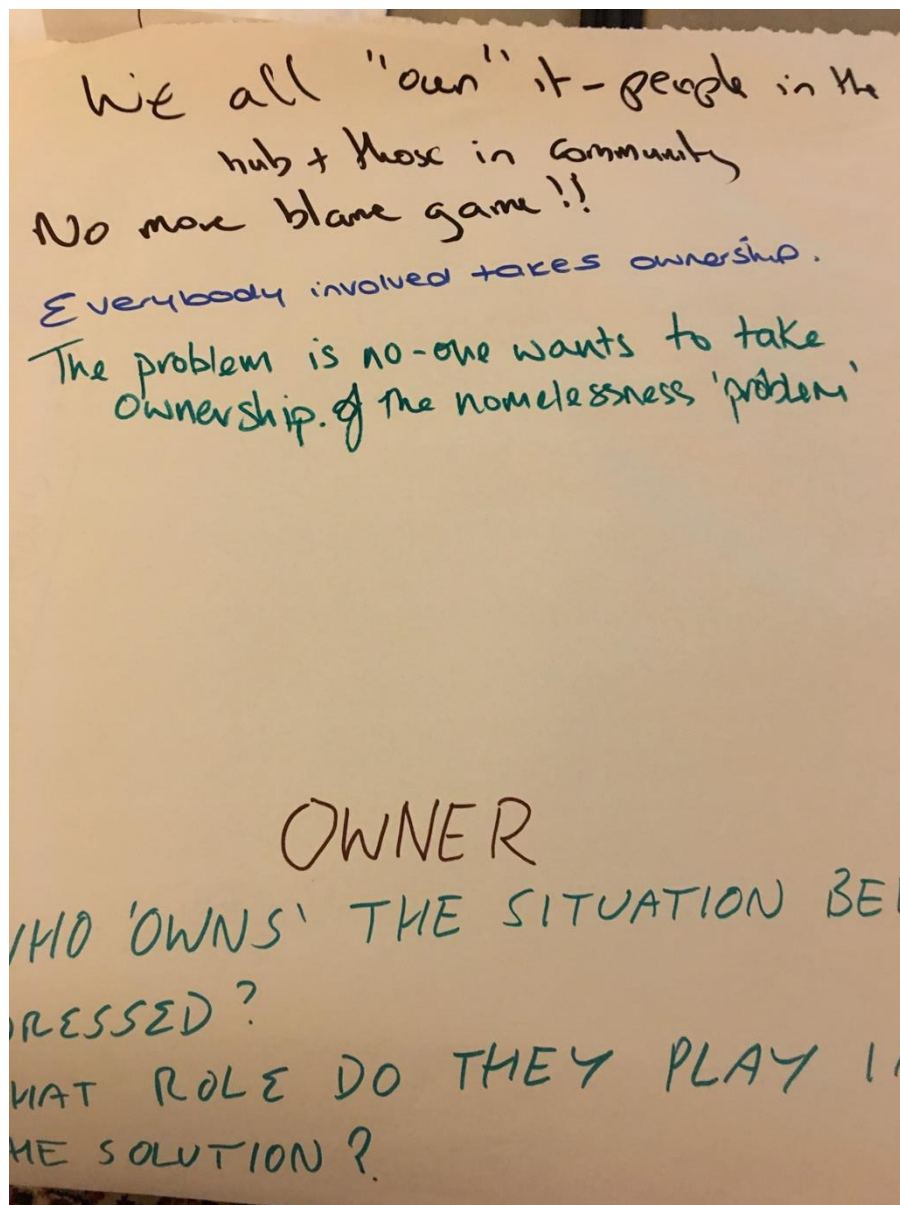 We all "own" it - people in the
hub + those in community
No more blame game!!
Everybody involved takes ownership.
The problem is no-one wants to take
ownership. of the homelessness 'problem'
OWNER
WHO 'OWNS' THE SITUATION BEI
DRESSED?
WHAT ROLE DO THEY PLAY IN
THE SOLUTION?